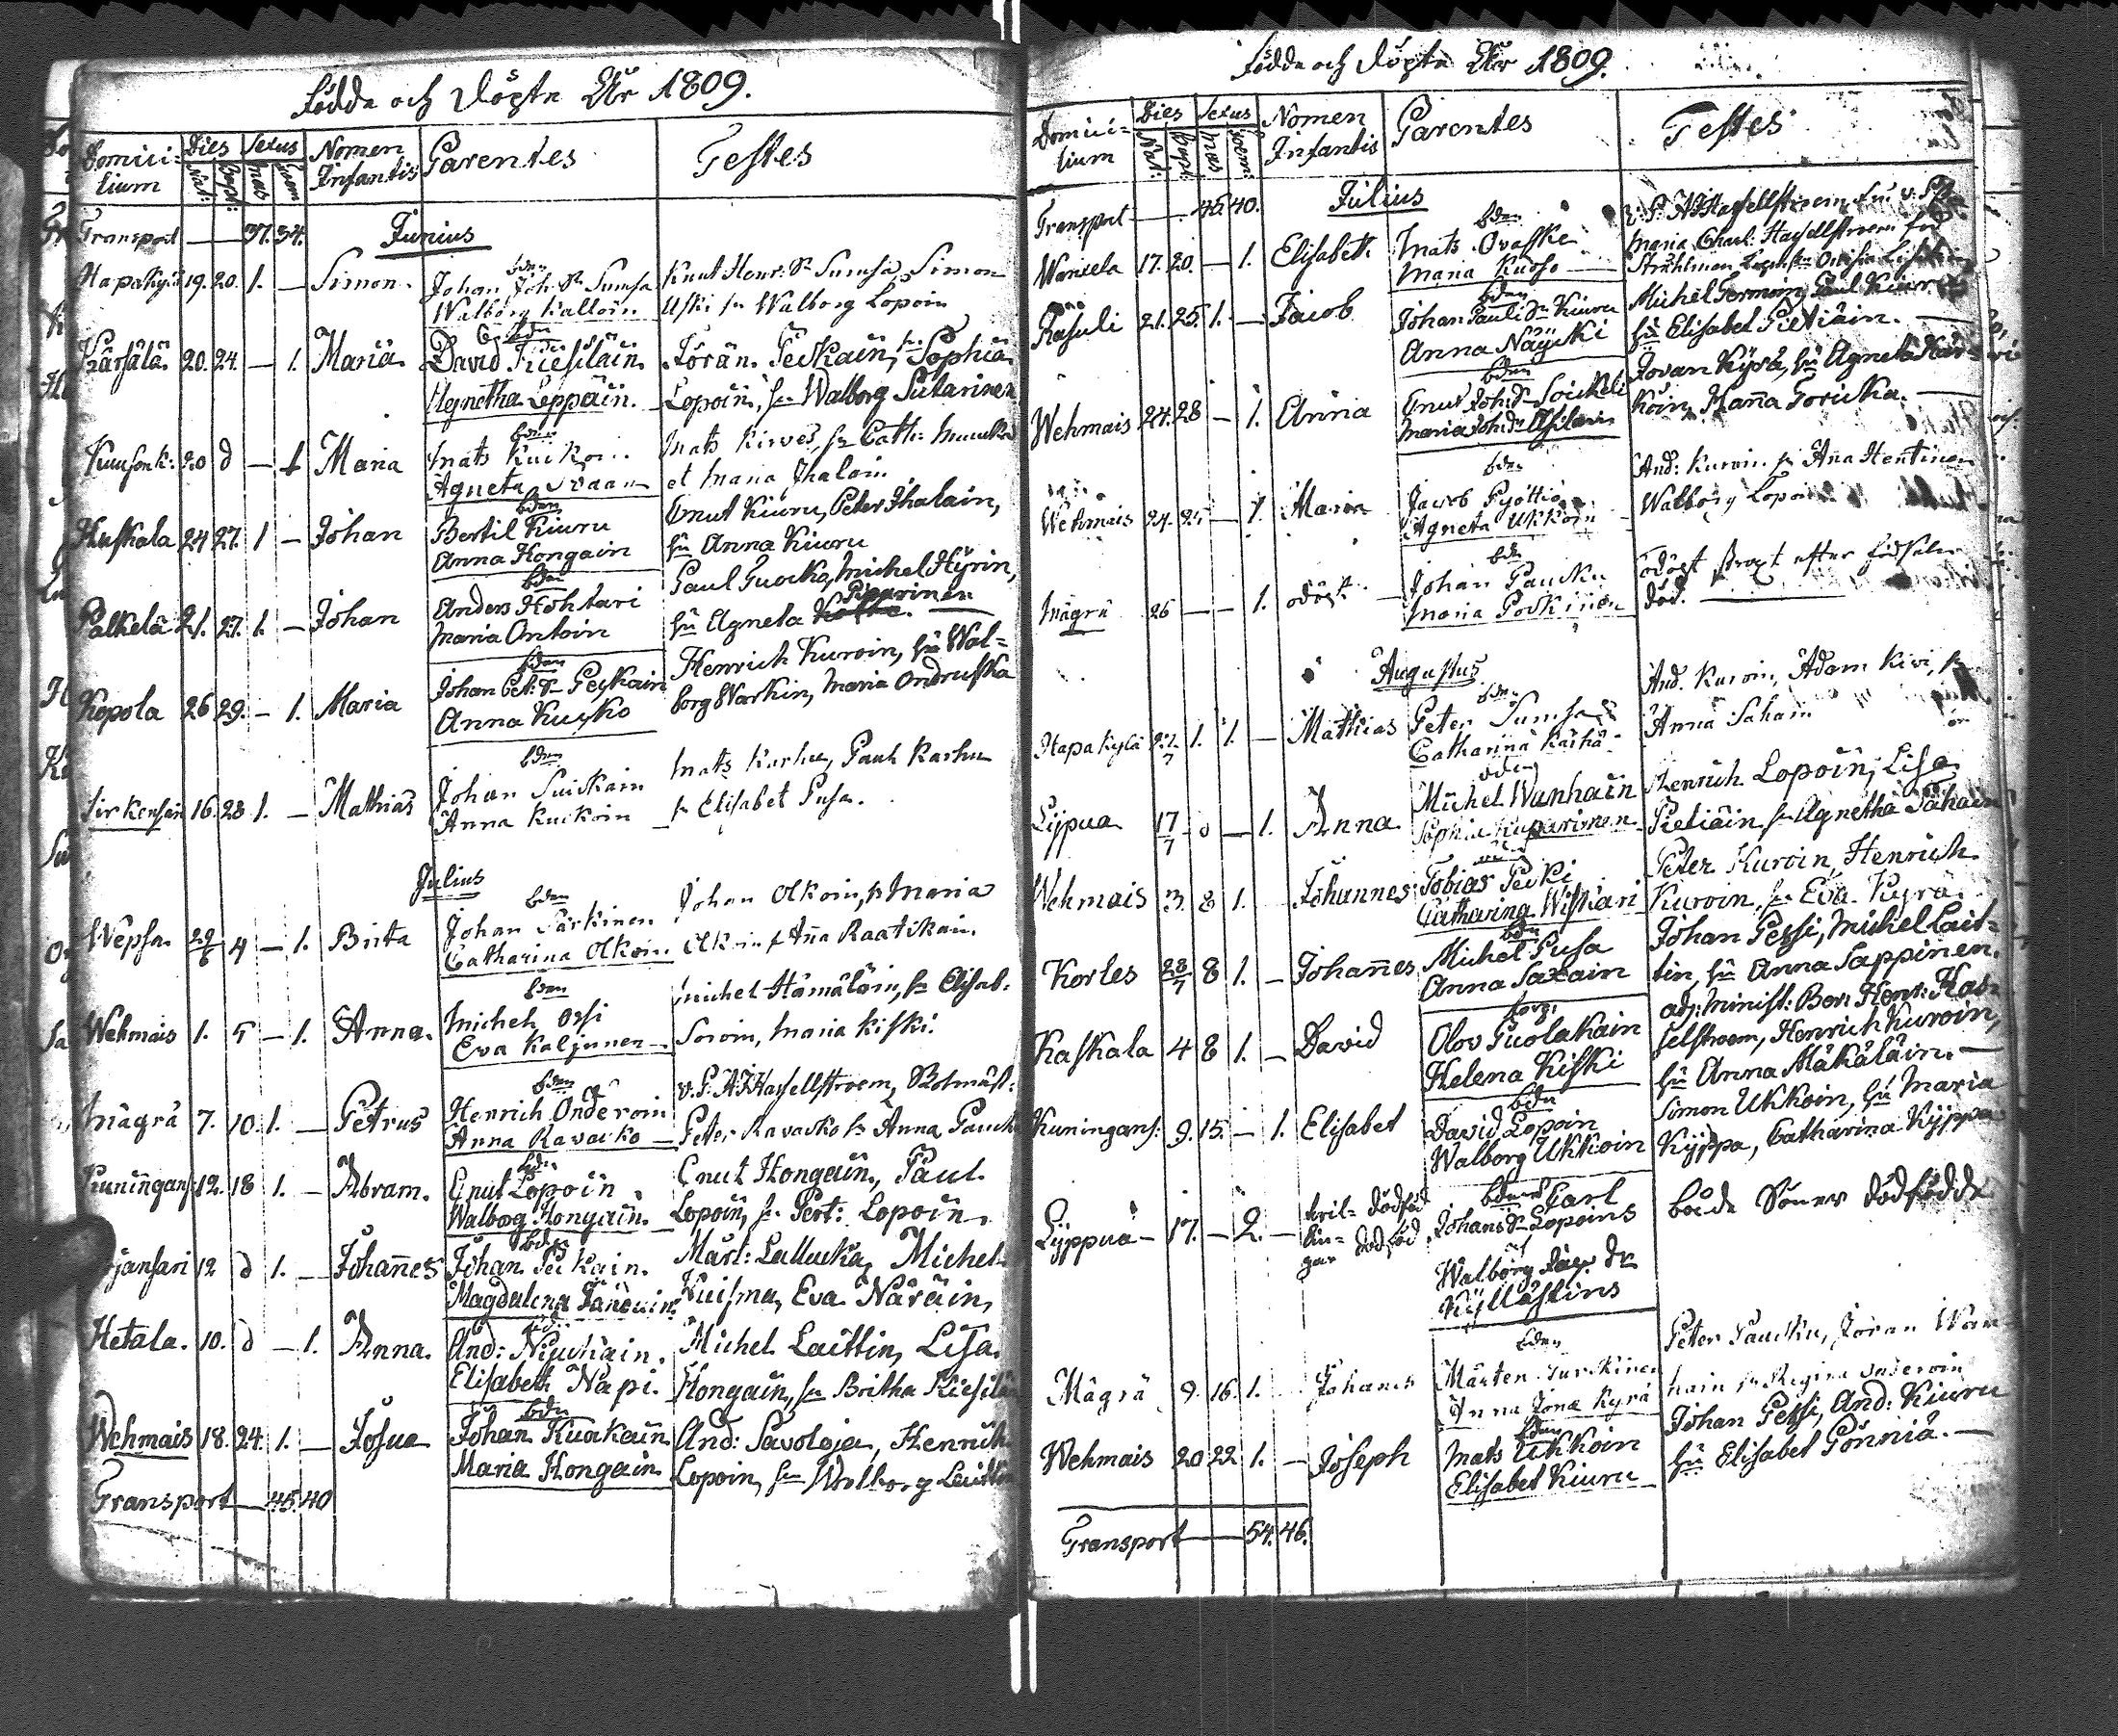 Födde och Döpte Åhr 1809.
Domici-
lium
Dies
Nat:
Bapt:
Sexus
mas
foem
Nomen
Infantis
Parentes
Testes
Transport — 37. 34.
Junius
Hapakylä 19. 20. 1. — Simon.
bdn
Johan Joh: Sr Sumsa
Walborg Kalloin.
Knut Henr: Sr Sumsa, Simon
Uski hu Walborg Lopoin
Kärsälä. 20. 24. — 1. Maria
bdn
David Kiesiläin
Agnetha Leppäin.
Jöran Teckain, hu Sophia
Lopoin, hu Walborg Sutarinen
20 d — 1 Maria
bdn
Mats
Agneta
Mats Kirves, hu Cath:
et Maria Ihaloin
Huskala 24 27. 1 — Johan
bdn
Bertil Kiuru
Anna Hongain
Cnut Kiuru, Peter Ihalain,
hu Anna Kiuru
Palkela 21. 27. 1. — Johan
bdn
Anders Hohtari
Maria Ontoin
Paul Michel Hyrin,
Piparinen
hu Agneta
Kopola 26 29. — 1. Maria
bdn
Johan Pet: Sr Peckain
Anna Kucko
Henrich Kuroin, hu Wal=
borg Warkin, Maria Ondruska
16. 28 1. — Mathias
bdn
Johan Suikain
Anna Kuckoin
Mats Karhu, Paul Karhu
hu Elisabet Pusa.
Julius
Wepsa. 29/6 4 — 1. Brita
bdn
Johan Särkinen
Catharina Olkoin.
Johan Olkoin, hu Maria
Olkoin hu Anna Raatikain.
Wehmais 1. 5 — 1. Anna.
bdn
Michel Ossi
Eva Kaljunen
Michel Hämäläin, hu Elisab.
Soroin, Maria Kiski.
Mägrä 7. 10. 1. — Petrus
bdn
Henrich Onderoin
Anna Ravacko
v.P. A.J. Hassellstroem, Rotmäst:
Peter Ravacko hu Anna
Kuningans 12. 18 1. — Abram.
bdn
Cnut Lopoin
Walborg Hongain.
Cnut Hongain, Paul
Lopoin, hu Pert: Lopoin.
12 d 1. — Johannes
bdn
Johan
Magdalena
Märt: Lallucka, Michel
Kuisma, Eva Näräin,
Hetala. 10. d — 1. Anna.
bdn
And: Niuchain.
Elisabeth Näpi.
Michel Laittin, Lisa
Hongain, hu Britha
Wehmais 18. 24. 1. — Josua
bdn
Johan Kuakain
Maria Hongain
And: Savoloja, Henrich
Lopoin, hu Walborg
Transport — 45. 40
Födde och Döpte Åhr 1809.
Domici-
lium
Dies
Nat:
Bapt:
Sexus
mas
foem:
Nomen
Infantis
Parentes
Testes
Transport — 45 40.
Julius
17. 20. — 1. Elisabeth
bdn
Mats Ovaske
Maria Kuoso
Maria Charl: Hassellstroem föd
Stråhlman
Rasuli 21. 25. 1. — Jacob
bdn
Johan Pauli Sr Kiuru
Anna Näycki
Michel Paul Kiuru
hu Elisabet Pietiäin.
Wehmais 24. 28 — 1. Anna
bdn
Cnut Joh: Sr
Maria Joh: Dr
Jovan Kyrä, hu Agneta
koin, Manna Toricka.
Wehmais 24. 25 — 1. Maria
bdn
Jacob
Agneta Ukkoin
And: Kuroin hu Anna Hentinen
Walborg Lopoin
Mägrä 26 — — 1. odöpt
bdn
Johan Paucku
Maria Poskinen
odöpt strax efter födslen
död.
Augustus
Hapakylä 27/7 1. 1. — Matthias
bdn
Peter Sumsa
Catharina Karhu
And. Kuroin, Adam Kivi, hu
Anna Sahain
Lijpua 17/7 d — 1. Anna
bdn
Michel Wanhain
Sophia Kuparinen
Henrich Lopoin, Lisa
Pietiäin hu Agnetha
Wehmais 3. 8 1. Johannes
Tobias Pecki
Catharina Wiskari
Peter Kuroin, Henrich
Kuroin, hu Eva Kyrä
Korles 28/7 8 1. — Johannes
bdn
Michel Pusa
Anna Saxain
Johan Pessi, Michel Lait=
tin, hu Anna Sappinen.
Kaskala 4 8 1. — David
torp:
Olov Puolakain
Helena Kiski
adj: Minist: Ber: Henr: Has=
selstroem, Henrich Kuroin,
hu Anna Mäkäläin. —
Kuningans: 9. 15. — 1. Elisabet
bdn
David Lopoin
Walborg Ukkoin
Simon Ukkoin, hu Maria
Kyppa, Catharina Kyppa
Lyppua — 17. — 2. —
tvil= dödföd
lin=
gar dödföd
bdn Carl
Johans Sr Lopoins
Walborg Dr
Kyllästins
både Söner dödfödde
Mägrä 9. 16. 1. Johannes
bdn
Mårten Turckinen
Anna Jonæ Kyrä
Peter Paucku, Jöran Wan=
hain hu Regina Onderoin
Wehmais 20 22 1. — Joseph
bdn
Mats Ukkoin
Elisabet Kiuru
Johan Pessi, And: Kiuru
hu Elisabet Pönniä. —
Transport — 54. 46.